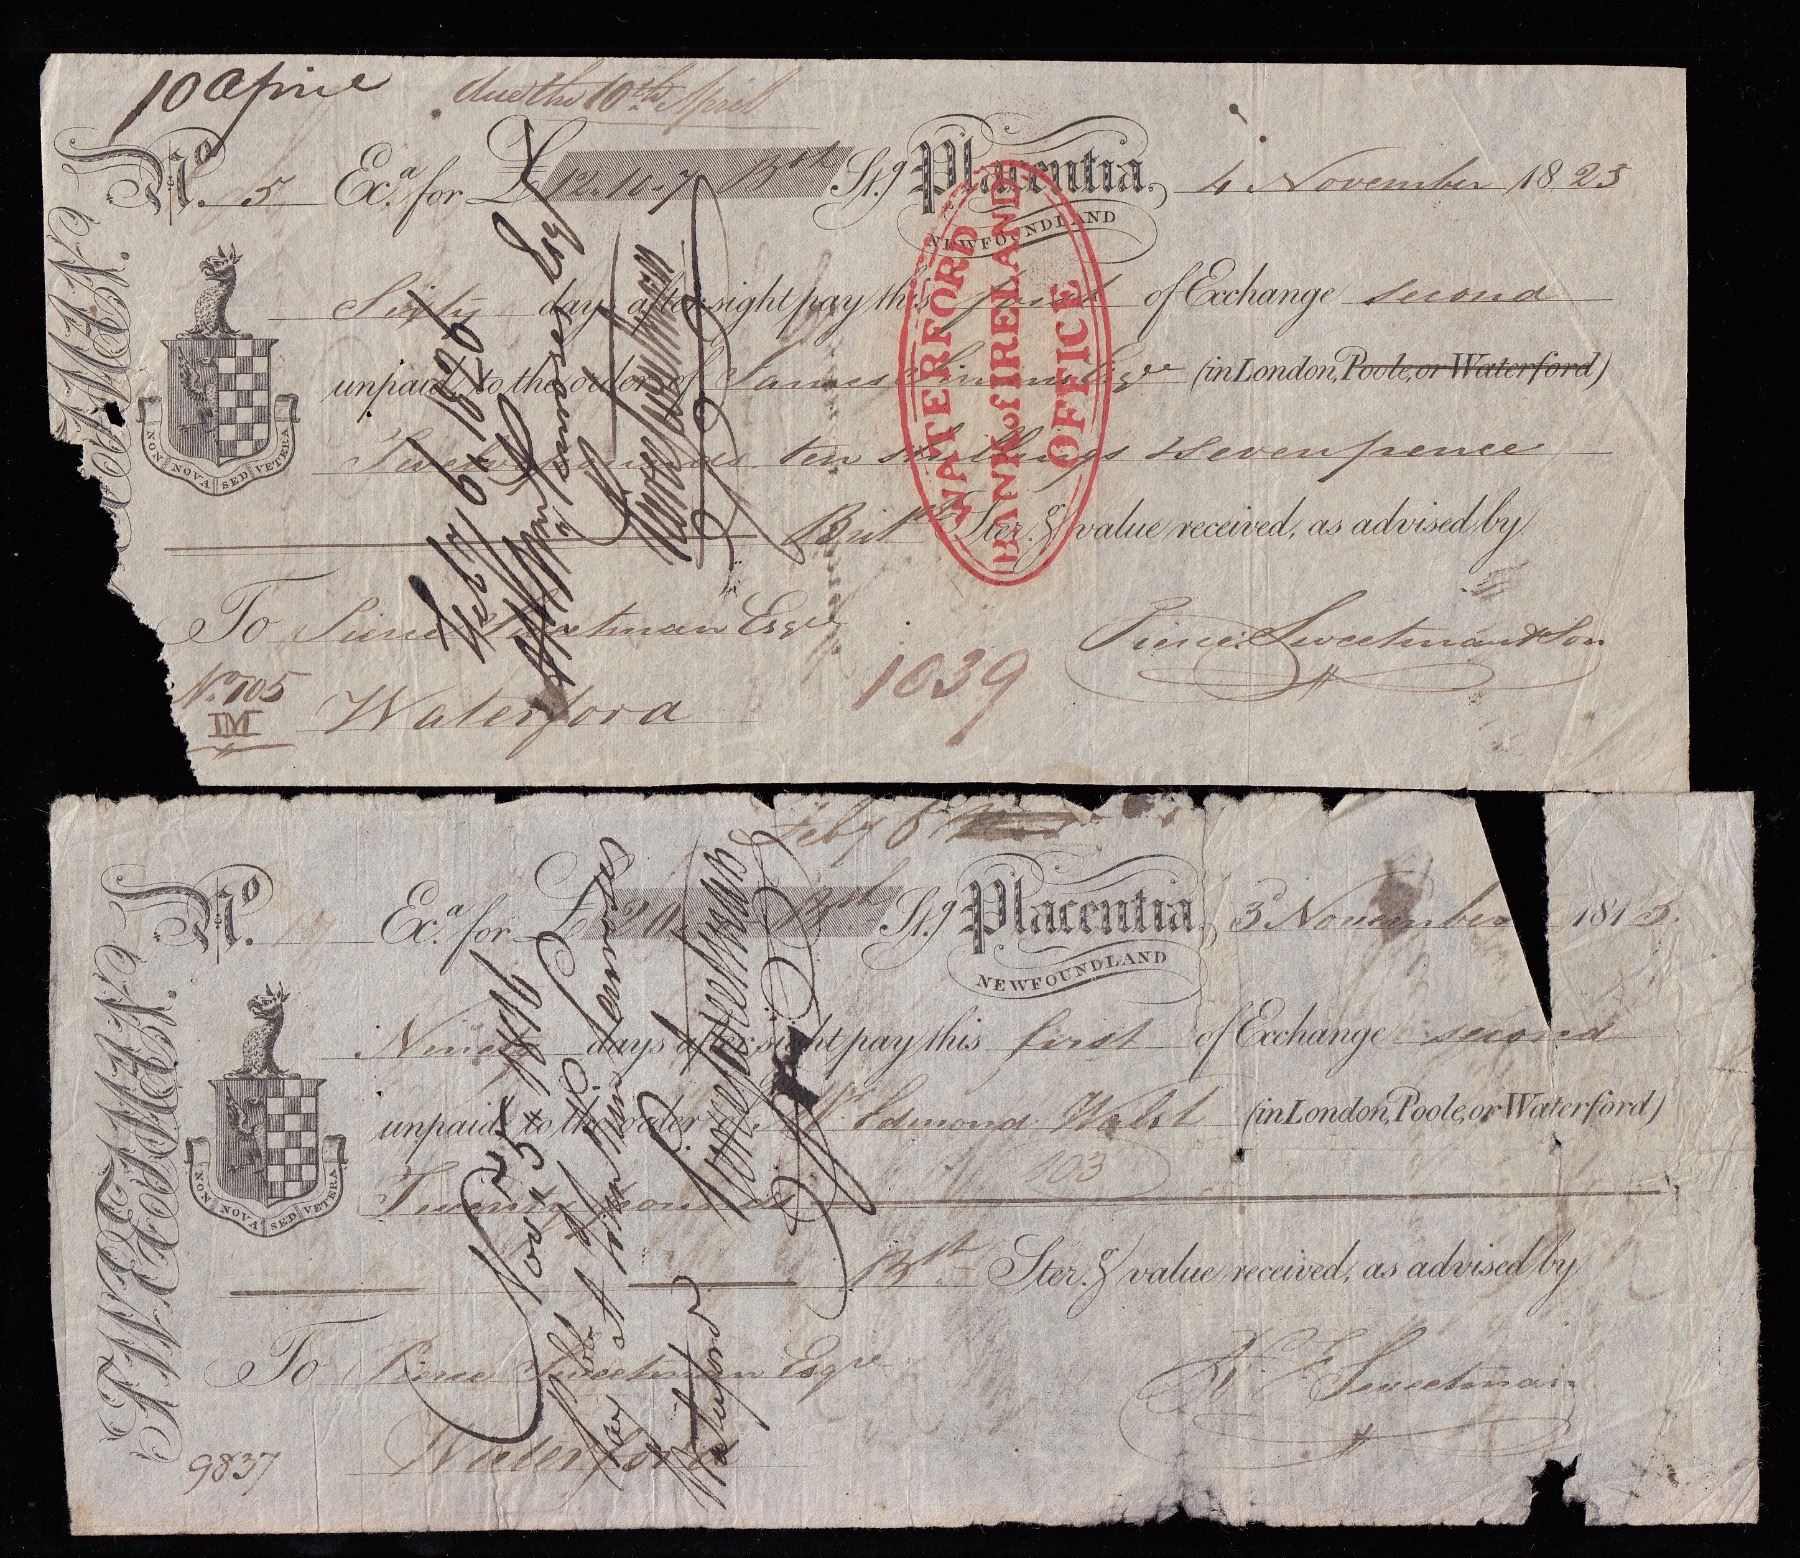 10 Aprile due the 10th April
No. 5 Exa. for £ 12.10.7 Bst Stg Placentia, 4 November 1825
NEWFOUNDLAND
Sixty days after sight pay this first of Exchange second
unpaid, to the order of James Simms Esqre (in London, Poole, or Waterford)
Twelve pounds ten shillings & seven pence
Brit Ster.g value received, as advised by
NON NOVA SED VETERA
To Pierce Sweetman Esqre Pierce Sweetman & Son
No. 705
Waterford 1039
WATERFORD
BANK of IRELAND
OFFICE
Feby 9th 1826
Esq
Pierce Sweetman
Feby 6
No. 17 Exa. for £ 20 Bst Stg Placentia, 3d November 1815
NEWFOUNDLAND
Ninety days after sight pay this first of Exchange second
unpaid, to the order Mr Edmond Walsh (in London, Poole, or Waterford)
103
Twenty pounds
Bst Ster.g value received, as advised by
NON NOVA SED VETERA
To Pierce Sweetman Esqre Sweetman
Waterford
9837
R. F. SWEETMAN.
Novr 5th
at
Waterford
Pierce Sweetman